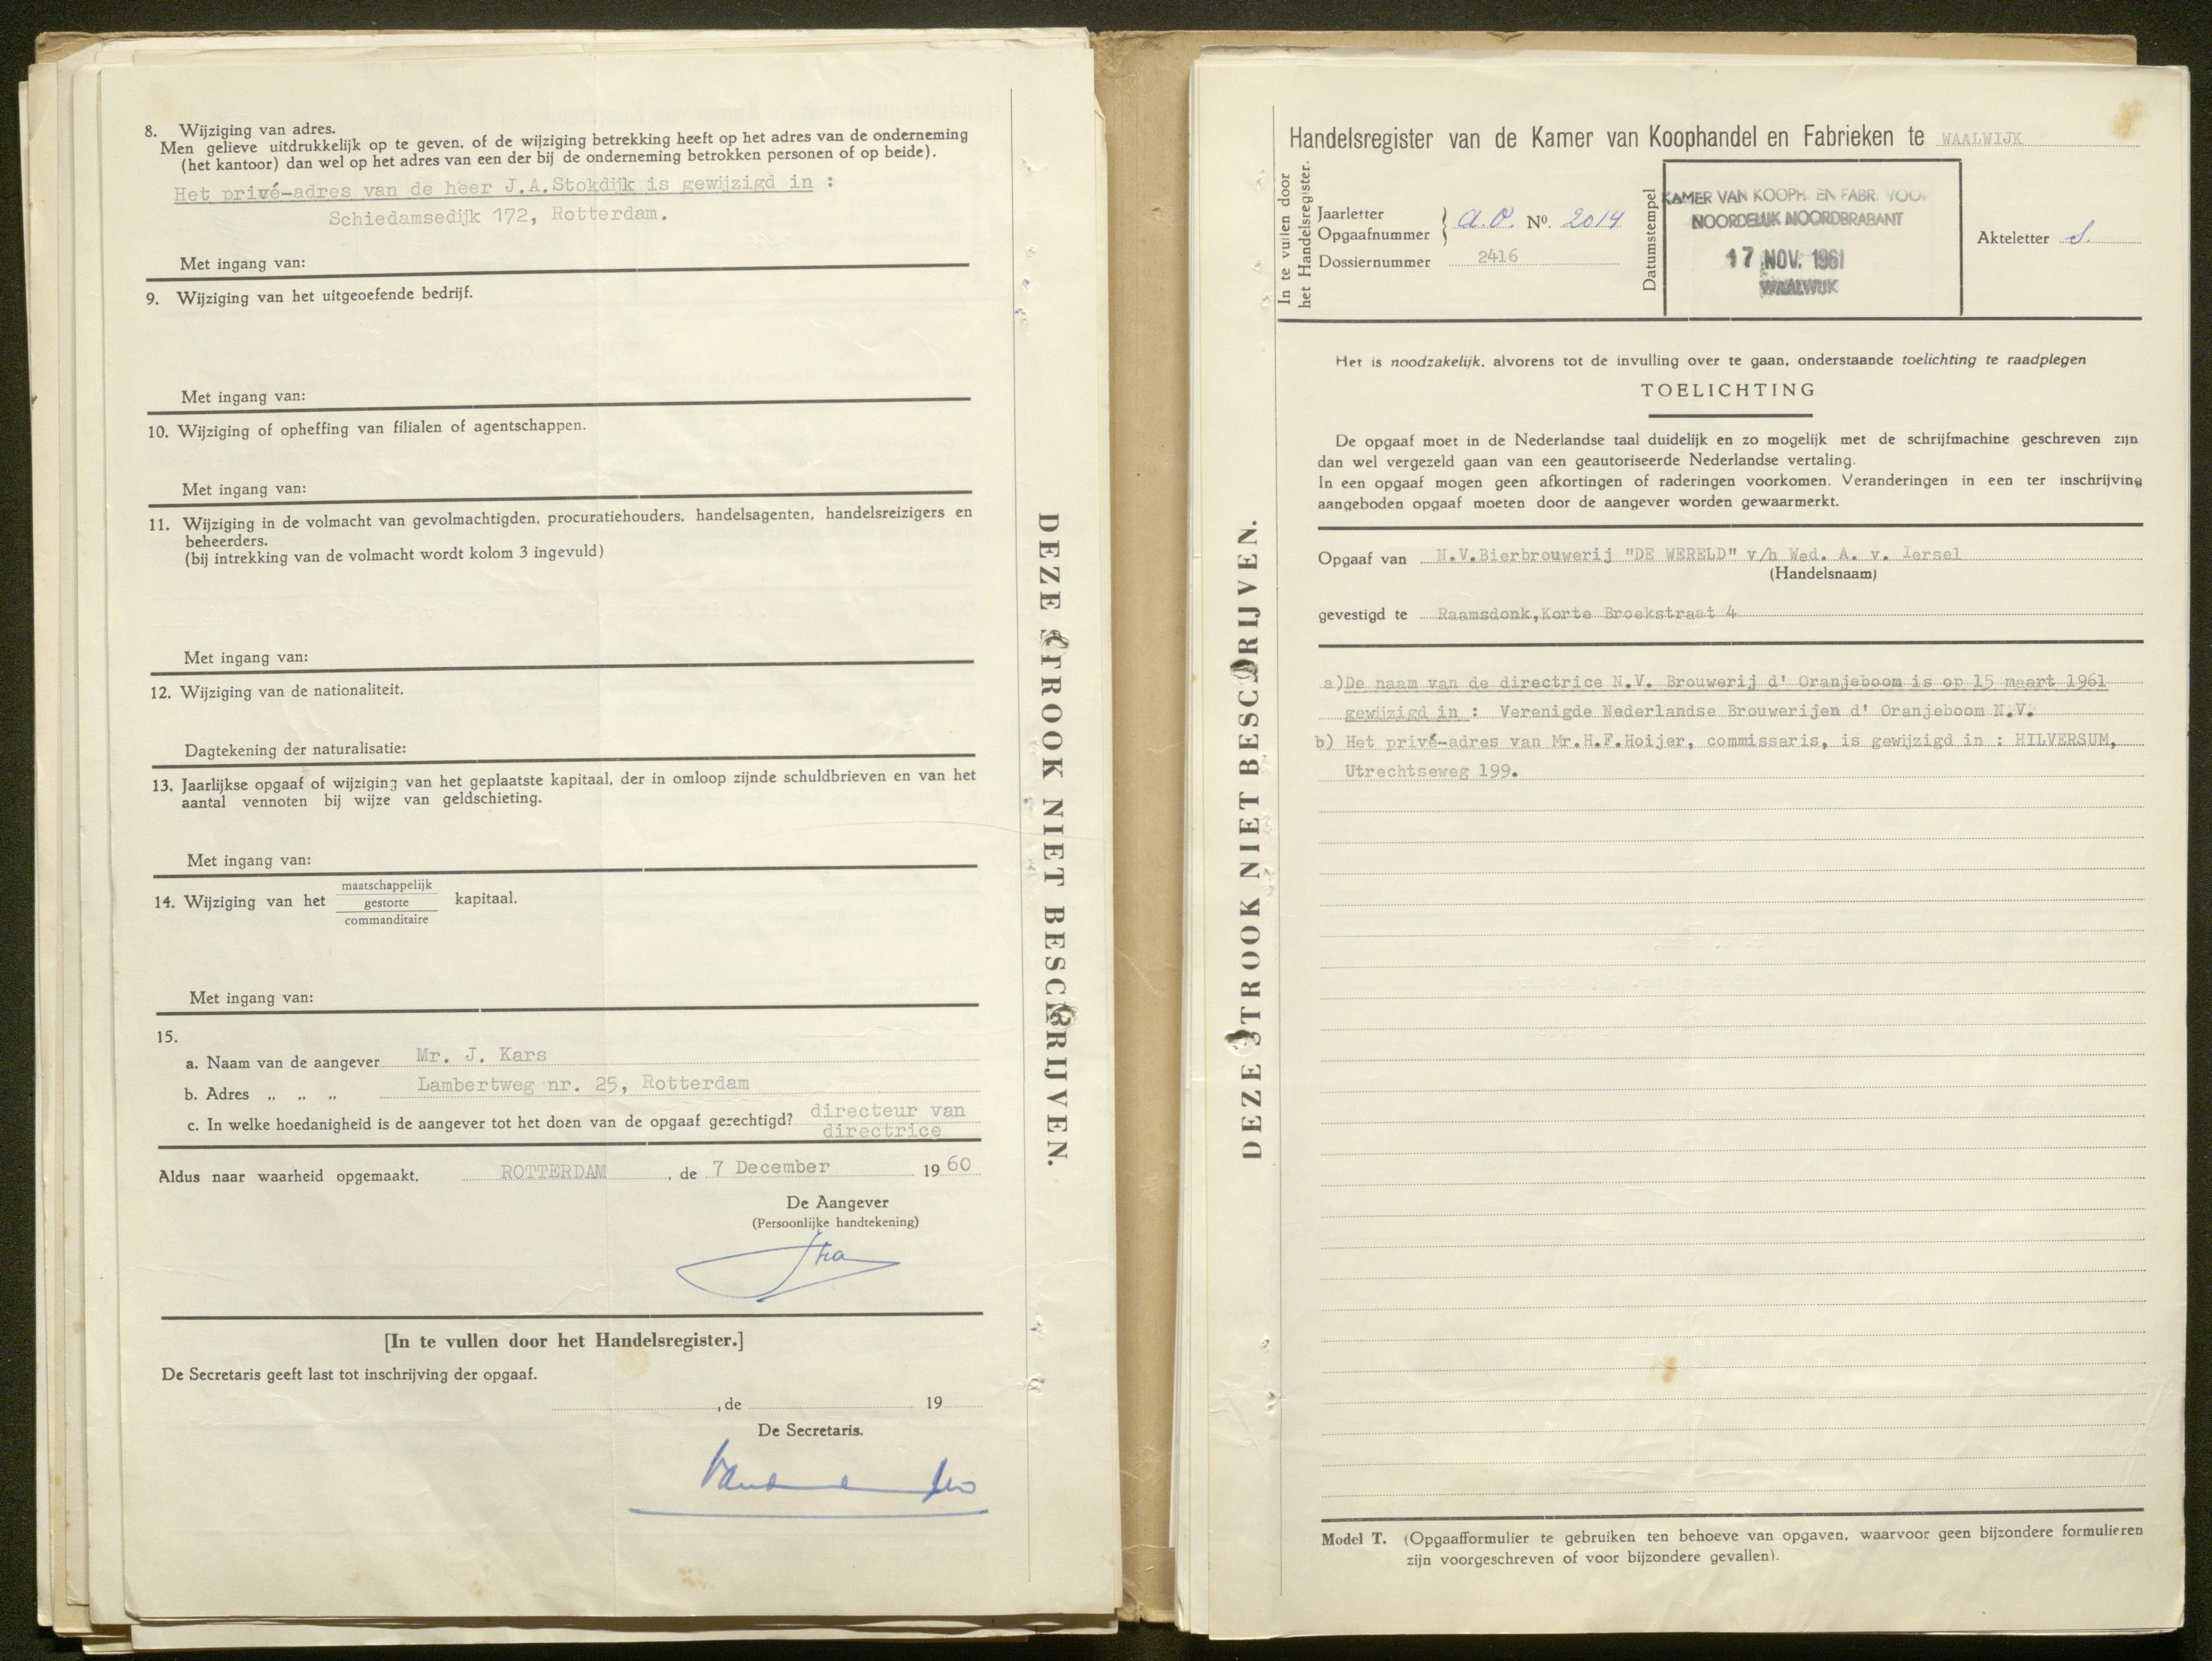 8. Wijziging van adres.
Men gelieve uitdrukkelijk op te geven, of de wijziging betrekking heeft op het adres van de onderneming
(het kantoor) dan wel op het adres van een der bij de onderneming betrokken personen of op beide).
Het privé-adres van de heer J.A.Stokdijk is gewijzigd in :
Schiedamsedijk 172, Rotterdam.
Met ingang van:
9. Wijziging van het uitgeoefende bedrijf.
Met ingang van:
10. Wijziging of opheffing van filialen of agentschappen.
Met ingang van:
11. Wijziging in de volmacht van gevolmachtigden, procuratiehouders, handelsagenten, handelsreizigers en
beheerders.
(bij intrekking van de volmacht wordt kolom 3 ingevuld)
Met ingang van:
12. Wijziging van de nationaliteit.
Dagtekening der naturalisatie:
13. Jaarlijkse opgaaf of wijziging van het geplaatste kapitaal, der in omloop zijnde schuldbrieven en van het
aantal vennoten bij wijze van geldschieting.
Met ingang van:
maatschappelijk
14. Wijziging van het gestorte kapitaal.
commanditaire
Met ingang van:
15.
a. Naam van de aangever Mr. J. Kars
b. Adres „ „ „ Lambertweg nr. 25, Rotterdam
c. In welke hoedanigheid is de aangever tot het doen van de opgaaf gerechtigd? directeur van
directrice
Aldus naar waarheid opgemaakt, ROTTERDAM , de 7 December 19 60
De Aangever
(Persoonlijke handtekening)
[In te vullen door het Handelsregister.]
De Secretaris geeft last tot inschrijving der opgaaf.
, de 19
De Secretaris.
DEZE STROOK NIET BESCHRIJVEN.
DEZE STROOK NIET BESCHRIJVEN.
Handelsregister van de Kamer van Koophandel en Fabrieken te WAALWIJK
In te vullen door
het Handelsregister.
Jaarletter
Opgaafnummer
a.o. No. 2014
Dossiernummer 2416
Datumstempel
KAMER VAN KOOPH. EN FABR. VOOR
NOORDELIJK NOORDBRABANT
17 NOV. 1961
WAALWIJK
Akteletter S.
Het is noodzakelijk, alvorens tot de invulling over te gaan, onderstaande toelichting te raadplegen
TOELICHTING
De opgaaf moet in de Nederlandse taal duidelijk en zo mogelijk met de schrijfmachine geschreven zijn
dan wel vergezeld gaan van een geautoriseerde Nederlandse vertaling.
In een opgaaf mogen geen afkortingen of raderingen voorkomen. Veranderingen in een ter inschrijving
aangeboden opgaaf moeten door de aangever worden gewaarmerkt.
Opgaaf van N.V.Bierbrouwerij "DE WERELD" v/h Wed. A. v. Iersel
(Handelsnaam)
gevestigd te Raamsdonk,Korte Broekstraat 4
a)De naam van de directrice N.V. Brouwerij d' Oranjeboom is op 15 maart 1961
gewijzigd in : Verenigde Nederlandse Brouwerijen d' Oranjeboom N.V.
b) Het privé-adres van Mr.H.F.Hoijer, commissaris, is gewijzigd in : HILVERSUM,
Utrechtseweg 199.
Model T. (Opgaafformulier te gebruiken ten behoeve van opgaven, waarvoor geen bijzondere formulieren
zijn voorgeschreven of voor bijzondere gevallen).